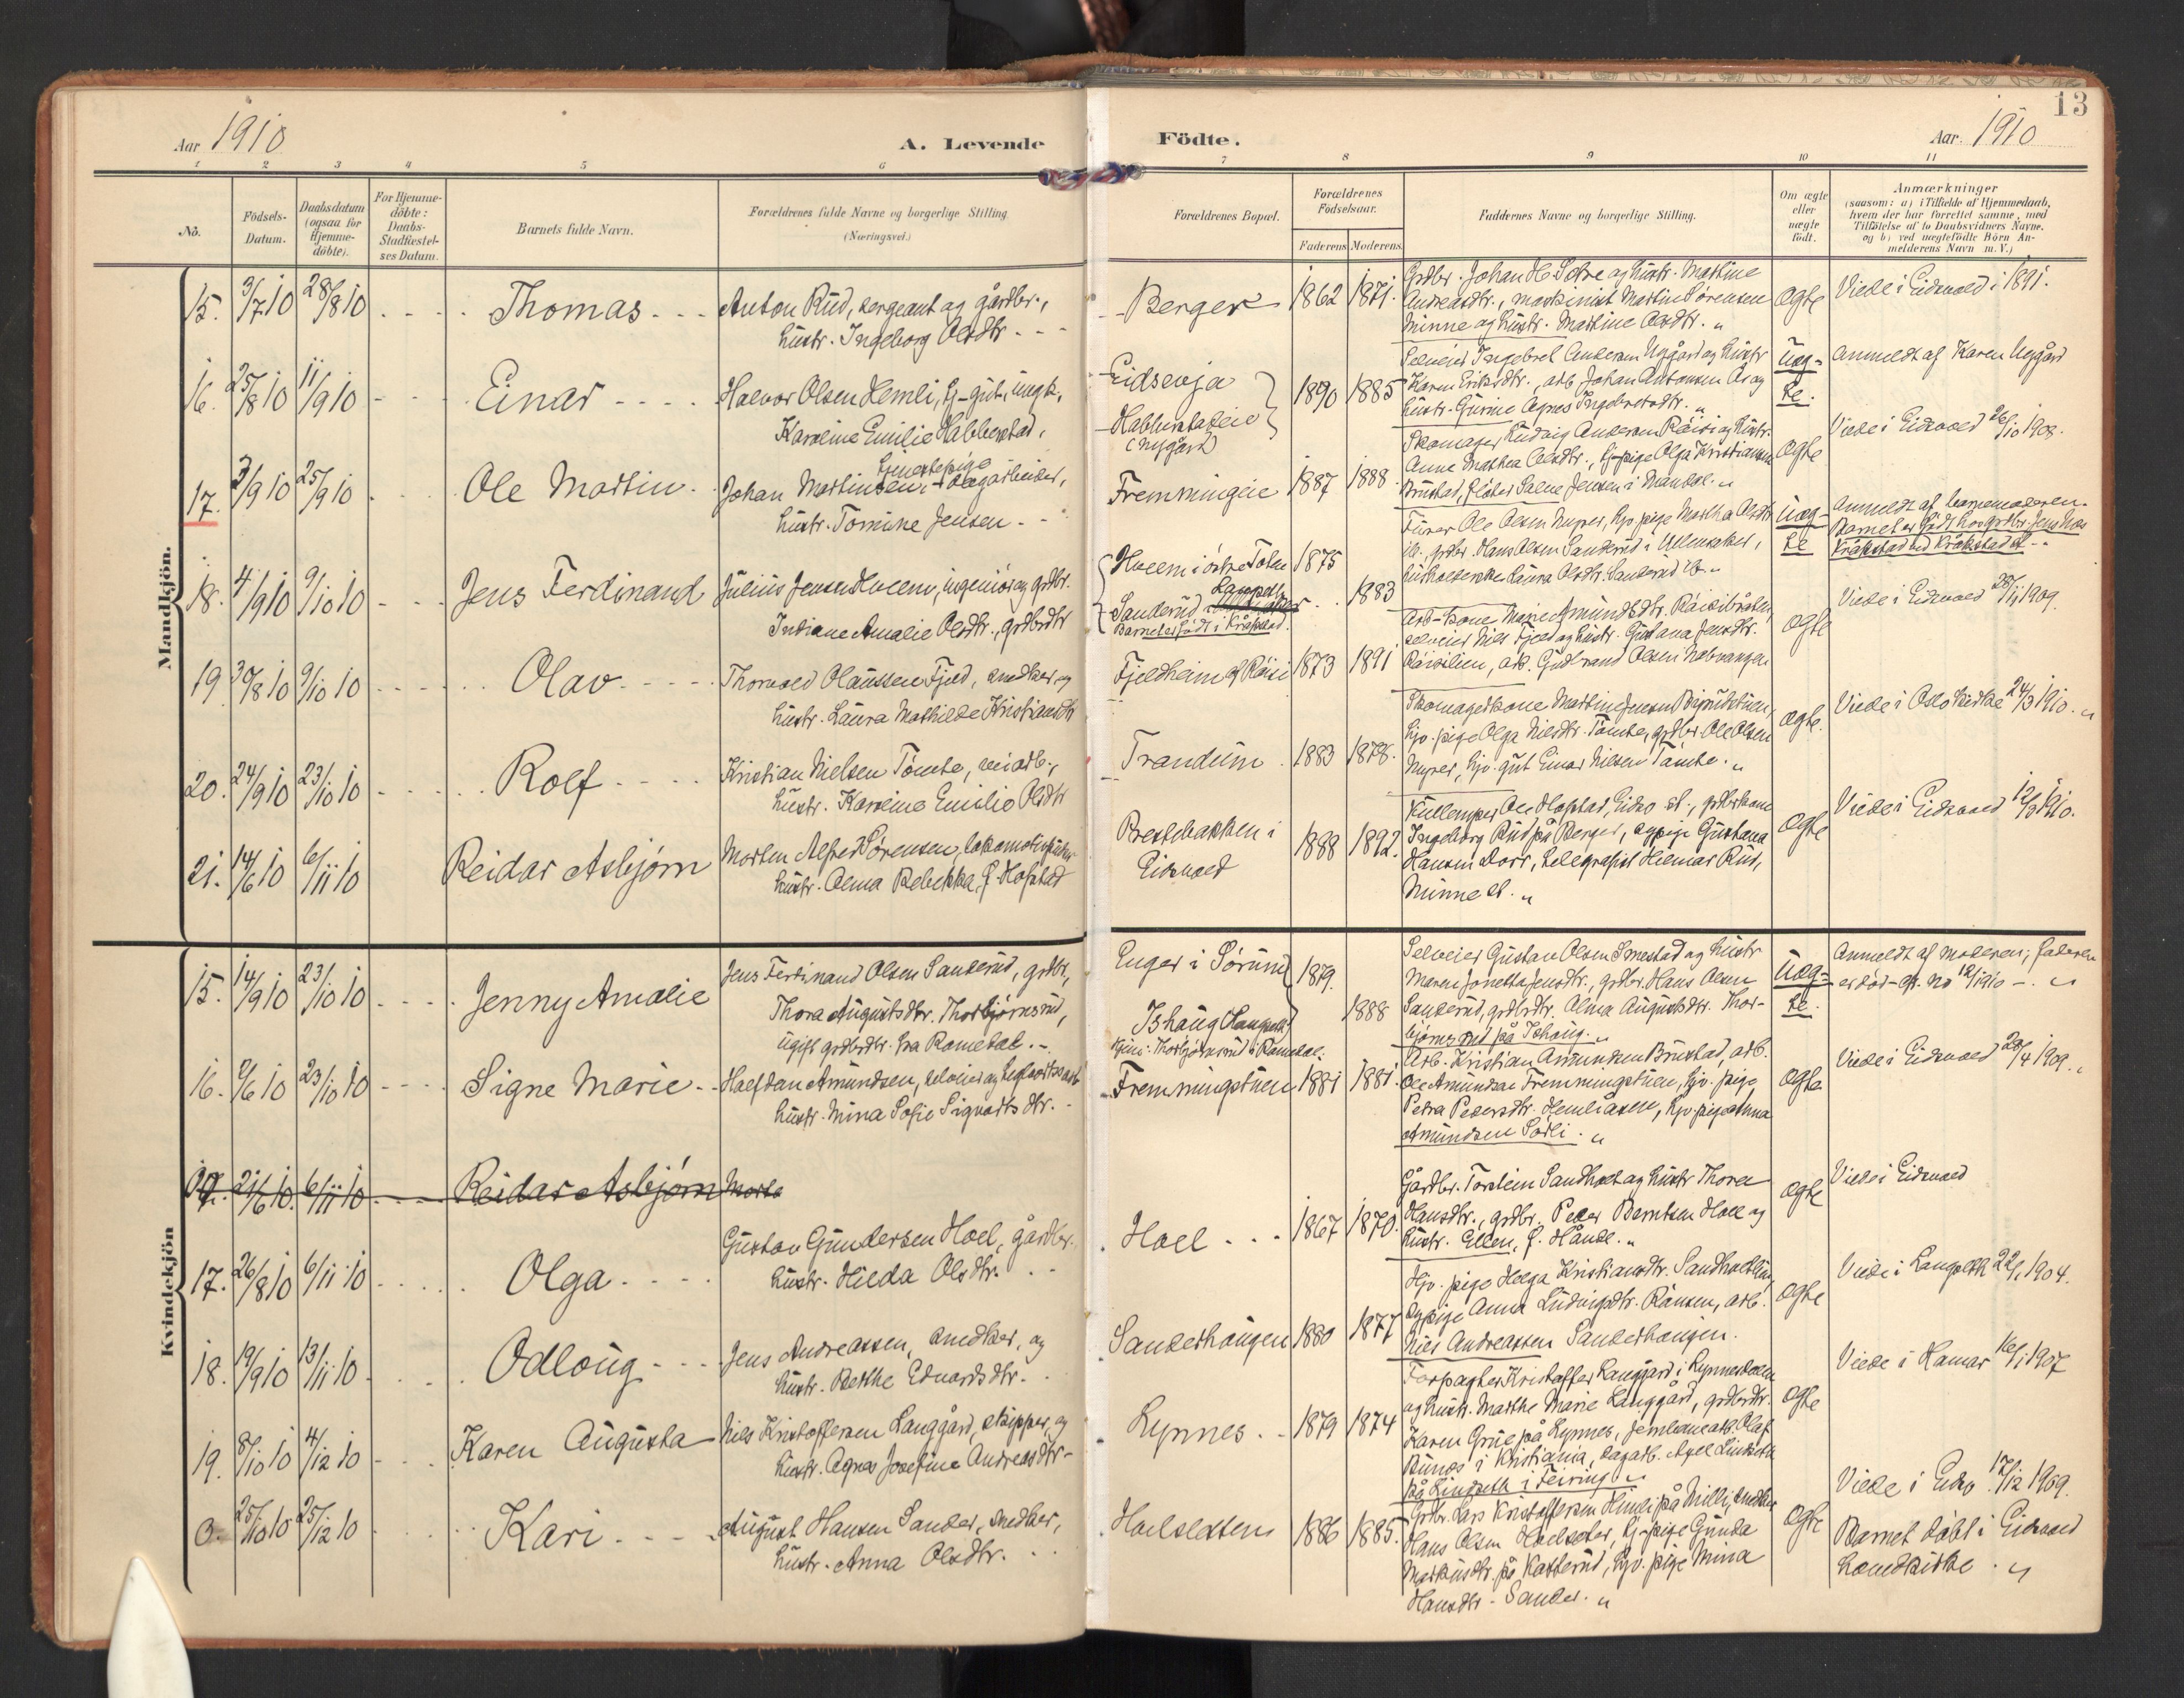 13
Aar 1910
A. Levende
Födte.
Aar. 1910
1 2 3 4 5 6 7 8 9 10 11
No.
Födsels-
Datum.
Daabsdatum
(ogsaa for
Hjemme-
döbte).
For Hjemme-
döbte:
Daabs-
Stadfæstel-
ses Datum.
Barnets fulde Navn.
Forældrenes fulde Navne og borgerlige Stilling
(Næringsvei.)
Forældrenes Bopæl.
Forældrenes
Födselsaar.
Faderens Moderens
Faddernes Navne og borgerlige Stilling.
Om ægte
eller
uægte
födt.
Anmærkninger
(saasom: a) i Tilfælde af Hjemmedaab,
hvem der har forrettet samme, med
Tilföielse af to Daabsvidners Navne,
og b) ved uægtefödte Börn An-
melderens Navn m. V.)
Mandkjön.
15. 3/7 10 28/8 10 Thomas
Anton Rud, sergeant og gårdbr.,
hustr. Ingeborg Olsdtr
Berger 1862 1871.
Grdbr. Johan H. og hustr. Martine
Andreasdtr., maskinist Martin Sørensen
Minne og hustr. Martine Olsdtr. "
ægte
Viede i Eidsvold i 1891.
16. 25/8 10 11/9 10 Einar
Halvor Olsen Hemli, tj-gut, ungk.
Karoline Emilie Habberstad,
tjenestepige
Eidsvoja
Habberstadeie
(Nygård)
1890 1885
Selveier Ingebret Andersen Nygård og hustr
Karen Eriksdtr., arb Johan Antonsen Ås og
hustr. Gurine Agnes Ingebretsdtr. "
Uæg-
te.
Anmeldt af Karen Nygård
17. 3/9 10 25/9 10 Ole Martin
Johan Martinsen, dagarbeider,
hustr. Tomine Jensen
Fremmingeie 1887 1888
Skomager Ludvig Andersen Räisi og hustr.
Anne Mathea Olsdtr., tj-pige Olga Kristiansen
Brustad, fløter Salve Jensen i Mandal. "
ægte
Viede i Eidsvold 26/10 1908.
18. 4/9 10 9/10 10 Jens Ferdinand
Julius Jensen Hveem, ingeniør og grdbr.
Indiane Amalie Olsdtr., grdbrdtr
Hveem i østre Toten
Sanderud Langseth
Barnet er født i Kråkstad.
1875 1883
Furer Ole Olsen Myrer, hjv. pige Martha Olsdtr
ib., grdbr. Hans Olsen Sanderud i Ullensaker,
husholderske Laura Olsdtr. Sanderud ib. "
Uæg-
te
Anmeldt af barnemoderen.
Barnet er født hos grdbr. Jens Næs
Kråkstad ved Kråkstad st. - "
19 30/8 10 9/10 10 Olav
Thorvald Olaussen Fjeld, snedker og
hustr. Laura Mathilde Kristiansdtr
Fjeldheim af Räisi 1873 1891
Arb-kone Marie Amundsdtr. Räisibråten,
selveier Nils Fjeld og hustr. Gustava Jensdtr.
Räisilien, arb. Gudbrand Olsen Nebvangen
ægte
Viede i Eidsvold 28/11 1909.
20. 24/9 10 23/10 10 Rolf
Kristian Nielsen Tömte, veiarb.,
hustr. Karoline Emilie Olsdtr
Trandum 1883 1878.
Skomagerkone Martin Jensen
hjv. pige Olga Nilsdtr. Tömte, grdbr. Ole Olsen
Myrer, hjv. gut Einar Nilsen Tömte. "
ægte.
Viede i Oslo kirke 24/3 1910. "
21. 14/6 10 6/11 10 Reidar Asbjørn
Morten Alfred Sørensen, lokomotivfyrbr
hustr. Alma Rebekka, f. Hofstad
Prestebakken i
Eidsvold
1888 1892.
Kullemper Ole Hofstad, Eidsv st., grdbrkone
Ingeborg Rud på Berger, sypige Gustava
Hansen Dorr, telegrafist Hilmar Rud,
Minne st. "
ægte
Viede i Eidsvold 12/3 1910.
Kvindekjön
15. 14/9 10 23/10 10 Jenny Amalie
Jens Ferdinand Olsen Sanderud, grdbr,
Thora Augustsdtr. Thorbjørnsrud,
ugift grdbrdtr. fra Romedal. -
Enger i Sørum
Ishaug (Langseth)
hjem: Thorbjørnsrud i Romedal.
1879. 1888
Selveier Gustav Olsen Smestad og hustr
Maren Jonetta Jensdtr., grdbr. Hans Olsen
Sanderud, grdbrdtr. Alma Augustsdtr. Thor-
bjørnsrud på Ishaug. "
Uæg-
te.
Anmeldt af moderen; faderen
er død - cfr. no 12/1910 -. "
16. 2/6 10 23/10 10 Signe Marie
Halfdan Amundsen, selveier og teglverksarb
hustr. Mina Sofie Sigvartsdtr. -
Fremmingstuen 1881 1881.
Arb. Kristian Amundsen Brustad, arb.
Ole Amundsen Fremmingstuen, hjv. pige
Petra Pedersdtr. Hemliåsen, hjv. pige Anna
Amundsen Sørli. "
ægte
Viede i Eidsvold 23/4 1909. "
17. 21/6 10. 6/11 10 Reidar Asbjørn Morte
17. 26/8 10 6/11 10 Olga
Gustav Gundersen Hoel, gårdbr.
hustr. Hilda Olsdtr.
Hoel 1867 1870.
Gårdbr. Torstein Sandholt og hustr Thora
Hansdtr., grdbr. Peder Berntsen Hoel og
hustr. Ellen, f. "
ægte
Viede i Eidsvold
18. 19/9 10 13/11 10 Odlaug
Jens Andreassen, snedker, og
hustr. Berthe Edvardsdtr.
Sanderhaugen 1880 1877
Hjv. pige Helga Kristiansdtr. Sandholtlien,
sypige Anna Ludvigsdtr. Rånsen, arb.
Nils Andreassen Sanderhaugen.
ægte
Viede i Langseth 22/1 1904.
19. 8/10 10 4/12 10 Karen Augusta
Nils Kristoffersen Langgård, skipper, og
hustr. Agnes Josefine Andreasdtr -
Lynnes 1879 1874
Forpagter Kristoffer Langgård i Lynnesdalen
og hustr. Marthe Marie Langgård, grdbrdtr.
Karen Grue på Lynnes, jernbanearb. Olaf
i Kristiania, dagarb. Axel Lindseth
på Lindseth i Feiring. "
ægte
Viede i Hamar 16/1 1907
0. 25/10 10 25/12 10 Kari
August Hansen Sander, snedker,
hustr. Anna Olsdtr.
Hoelseteren 1886 1885.
Grdbr. Lars Kristoffersen Hemli på Milli, snedker
Hans Olsen Hoelseter, tj-pige Gunda
Markusdtr. på Katterud, hjv. pige Mina
Hansdtr. Sander. "
ægte
Viede i Eidsv 17/12 1909.
Barnet døbt i Eidsvold
hovedkirke. "